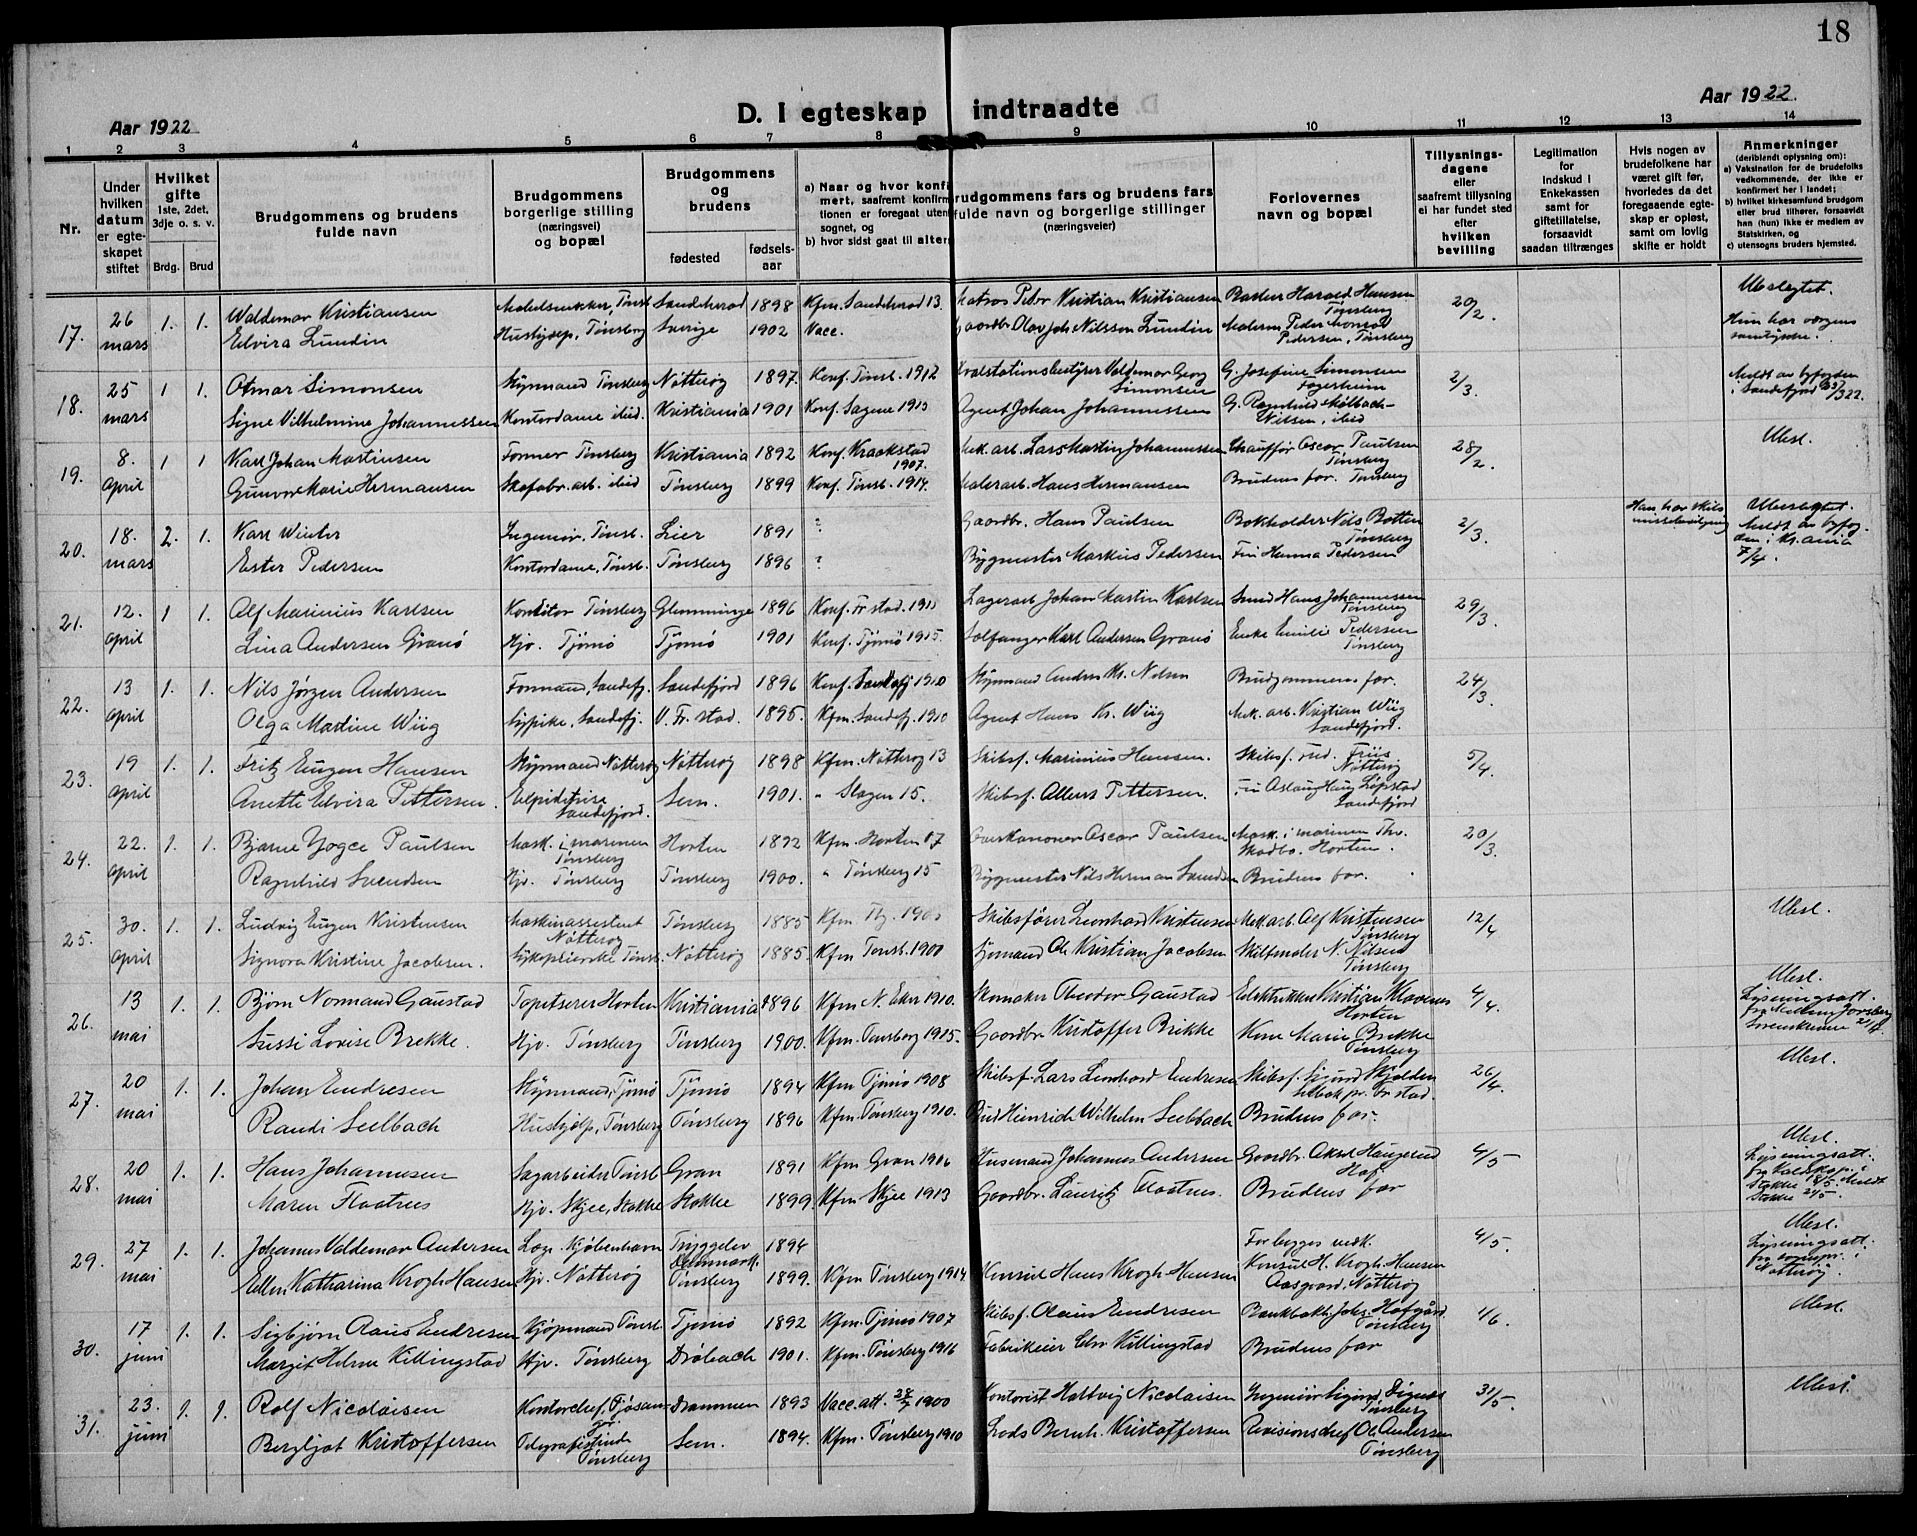 18
Aar 1922
D. I egteskap indtraadte
Aar 1922.
1 2 3 4 5 6 7 8 9 10 11 12 13 14
Nr.
Under hvilken datum er egteskapet stiftet
Hvilket gifte 1ste, 2det, 3dje o. s. v.
Brdg. Brud
Brudgommens og brudens fulde navn
Brudgommens borgerlige stilling (næringsvei) og bopæl
Brudgommens og brudens
fødested
fødselsaar
a) Naar og hvor konfirmert, saafremt konfirmationen er foregaat utensognet, og
b) hvor sidst gaat til alters
Brudgommens fars og brudens fars fulde navn og borgerlige stillinger (næringsveier)
Forlovernes navn og bopæl
Tillysningsdagene eller saafremt tillysning ei har fundet sted efter hvilken bevilling
Legitimation for Indskud i Enkekassen samt for giftetillatelse, forsaavidt saadan tiltrænges
Hvis nogen av brudefolkene har været gift før, hvorledes da det foregaaende egteskap er opløst, samt om lovlig skifte er holdt
Anmerkninger (deriblendt oplysning om): a) Vaksination for de brudefolks vedkommende, der ikke er konfirmert her i landet; b) hvilket kirkesamfund brudgom eller brud tilhører, forsaavidt han (hun) ikke er medlem av Statskirken, og c) utensogns bruders hjemsted.
17. 26 mars 1. 1. Waldemar Kristiansen Møbelsnekker, Tønsb. Sandeherad 1898 Kfm. Sandeherad 13. Matros Peder Kristian Kristiansen Harald Hansen Tønsberg 20/2. Ubeslegtet.
Elvira Lundin Hushjælp, Tønsberg Sverige 1902 Vacc. Gaardbr. Olov Joh. Nilsson Lundin Malerm. Peder Pedersen, Tønsberg Hun har værgens samtykke.
18. 25 mars 1 1. Otmar Simonsen Styrmand Tønsberg Nøtterøy 1897. Konf. Tønsb. 1912 Hvalstationsbestyrer Valdemar Georg Simonsen G. Josefine Simonsen Fagerheim 2/3. Meldt av byfogden i Sandefjord 25/3 22.
Signe Vilhelmine Johannessen Kontordame ibid. Kristiania 1901 Konf. Sagene 1915 Agent Johan Johannessen G. Ragnhild Mølbach-Nilsen, ibid
19. 8. april 1 1 Karl Johan Martinsen Former Tønsberg Kristiania 1892 Konf. Kraakstad 1907. Mek. arb. Lars Martin Johannessen Chauffør Oscar Paulsen Tønsberg 28/2. Ubesl.
Gunvor Marie Hermansen Skofabr. arb. ibid Tønsberg 1899 Konf. Tønsb. 1914. Malerarb. Hans Hermansen Brudens far. Tønsberg
20. 18. mars 2. 1. Karl Winter Ingeniør, Tønsb. Lier 1891 ? Gaardbr. Hans Paulsen Bokholder Nils Botten Tønsberg 2/3. Han har skilsmissebevilgning Ubeslegtet. Meldt av byfogden i Kr.ania 7/4.
Ester Pedersen Kontordame, Tønsb. Tønsberg 1896 ? Bygmester Markus Pedersen Frk Hanna Pedersen
21. 12. april 1 1. Alf Marinius Karlsen Konditor Tønsberg Glemminge 1896 Konf. Fr.stad. 1911 Lagerarb. Johan Martin Karlsen Hans Johannessen Tønsberg 29/3.
Lina Andersen Granø Hjv. Tjømø Tjømø 1901 Konf. Tjømø 1915. Selfanger Karl Andersen Granø Enke Emilie Pedersen Tønsberg
22. 13 april 1. 1. Nils Jørgen Andersen Formand, Sandefj. Sandefjord 1896 Konf. Sandefj 1910 Styrmand Anders Kr. Nilsen Brudgommens far. 24/3.
Olga Martine Wiig Sypike, Sandefj. V. Fr.stad. 1895. Kfm. Sandefj. 1910 Agent Hans Kr. Wiig Mek. arb. Kristian Wiig Sandefjord.
23. 19 april 1. 1. Fritz Eugen Hansen Styrmand Nøtterøy Nøtterøy 1898 Kfm. Nøtterøy 13 Skibsf. Marinius Hansen. Skibsf. Friis Nøtterøy 5/4.
Anette Elvira Pettersen. Sandefjord. Sem. 1901. " Slagen 15. Skibsf. Pettersen. Aslaug Haug Løpstad Sandefjord
24. 22. april 1. 1. Bjarne Yngve Paulsen Mask. i marinen Tønsberg Horten 1892 Kfm. Horten 07 Overkanoner Oscar Paulsen Mask. i marinen Thv. Skadbo. Horten. 20/3.
Ragnhild Svendsen Hjv. Tønsberg Tønsberg 1900. " Tønsberg 15 Bygmester Nils Herman Svendsen Brudens far.
25. 30. april 1. 1. Ludvig Eugen Kristensen Maskinassistent Nøtterøy Tønsberg 1885 Kfm. Tbg. 1900 Skibsfører Leonhard Kristensen Mek. arb. Alf Kristensen Tønsberg 12/4 Ubesl.
Signora Kristine Jacobsen. Tønsb. Nøtterøy 1885. Kfm Tønsb. 1900 Sjømand Ole Kristian Jacobsen N. Nilsen Tønsberg
26. 13 mai 1. 1. Bjørn Normand Gaustad Tapetserer Horten Kristiania 1896 Kfm N. Eker 1910. Skomaker Theodor Gaustad Elektriker Kristian Klavenes Horten 4/4. Ubesl. Lysningsatt.
Sussi Lovise Brekke. Hjv. Tønsberg Tønsberg 1900. Kfm. Tønsberg 1915. Gaardbr. Kristoffer Brekke Kone Marie Brekke Tønsberg
27. 20 mai 1. 1. Johan Endresen Styrmand, Tjømø Tjømø 1894 Kfm Tjømø 1908 Skibsf. Lars Leonhard Endresen Skibsf. Sigurd Skjolden Selbak pr. Fr.stad. 26/4. Ubesl.
Randi Seelbach Hushjælp, Tønsberg Tønsberg 1896 Kfm. Tønsberg 1910. Bud Heinrich Wilhelm Seelbach Brudens far.
28. 20 mai 1. 1. Hans Johannesen Sagarbeider Tønsb. Gran 1891 Kfm Gran 1906 Husmand Johannes Andersen Gaardbr. Aksel Haugerud Hof 4/5 Ubesl. Lysningsatt.
Maren Flaatnes Hjv. Skjee, Stokke Stokke 1899. Kfm Skjee 1913 Gaardbr. Lauritz Flaatnes. Brudens far
29. 27 mai 1. 1. Johannes Valdemar Andersen Læge Kjøbenhavn Tryggelev Danmark. 1894 Forbygges vedk. 4/5. Ubesl. Lysningsatt. fra sognepr. i Nøtterøy.
Ellen Katharina Krogh Hansen Hjv. Nøtterøy Tønsberg 1899. Kfm Tønsberg 1914. Konsul Hans Krogh Hansen Konsul H. Krogh-Hansen Aasgaard, Nøtterøy
30. 17 juni 1. 1. Sigbjørn Aaus Endresen Kjøpmand Tønsb. Tjømø 1892 Kfm. Tjømø 1907 Skibsf. Olaus Endresen Bankbokh. Joh. Hofgård. Tønsberg 1/6. Ubesl.
Margit Helene Killingstad Hjv. Tønsberg Drøbach 1901. Kfm. Tønsberg 1916 Fabrikeier Chr. Killingstad Brudens far
31. 23. juni 1. 1. Rolf Nicolaisen Kontorchef, Drammen 1893 Vacc. att. 28/7 1900 Kontorist Hartvig Nicolaisen Ingeniør Sigurd Tønsberg 31/5. Ubesl.
Bergljot Kristoffersen Telegrafistinde Tønsberg Sem. 1894. Kfm. Tønsberg 1910 Lods Bernh. Kristoffersen Revisionschef Ol. Andersen Tønsberg